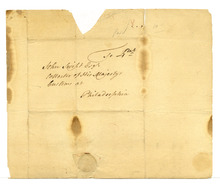 John Swift Esqr
Collector of His Majestys
Customs at
Philadelphia